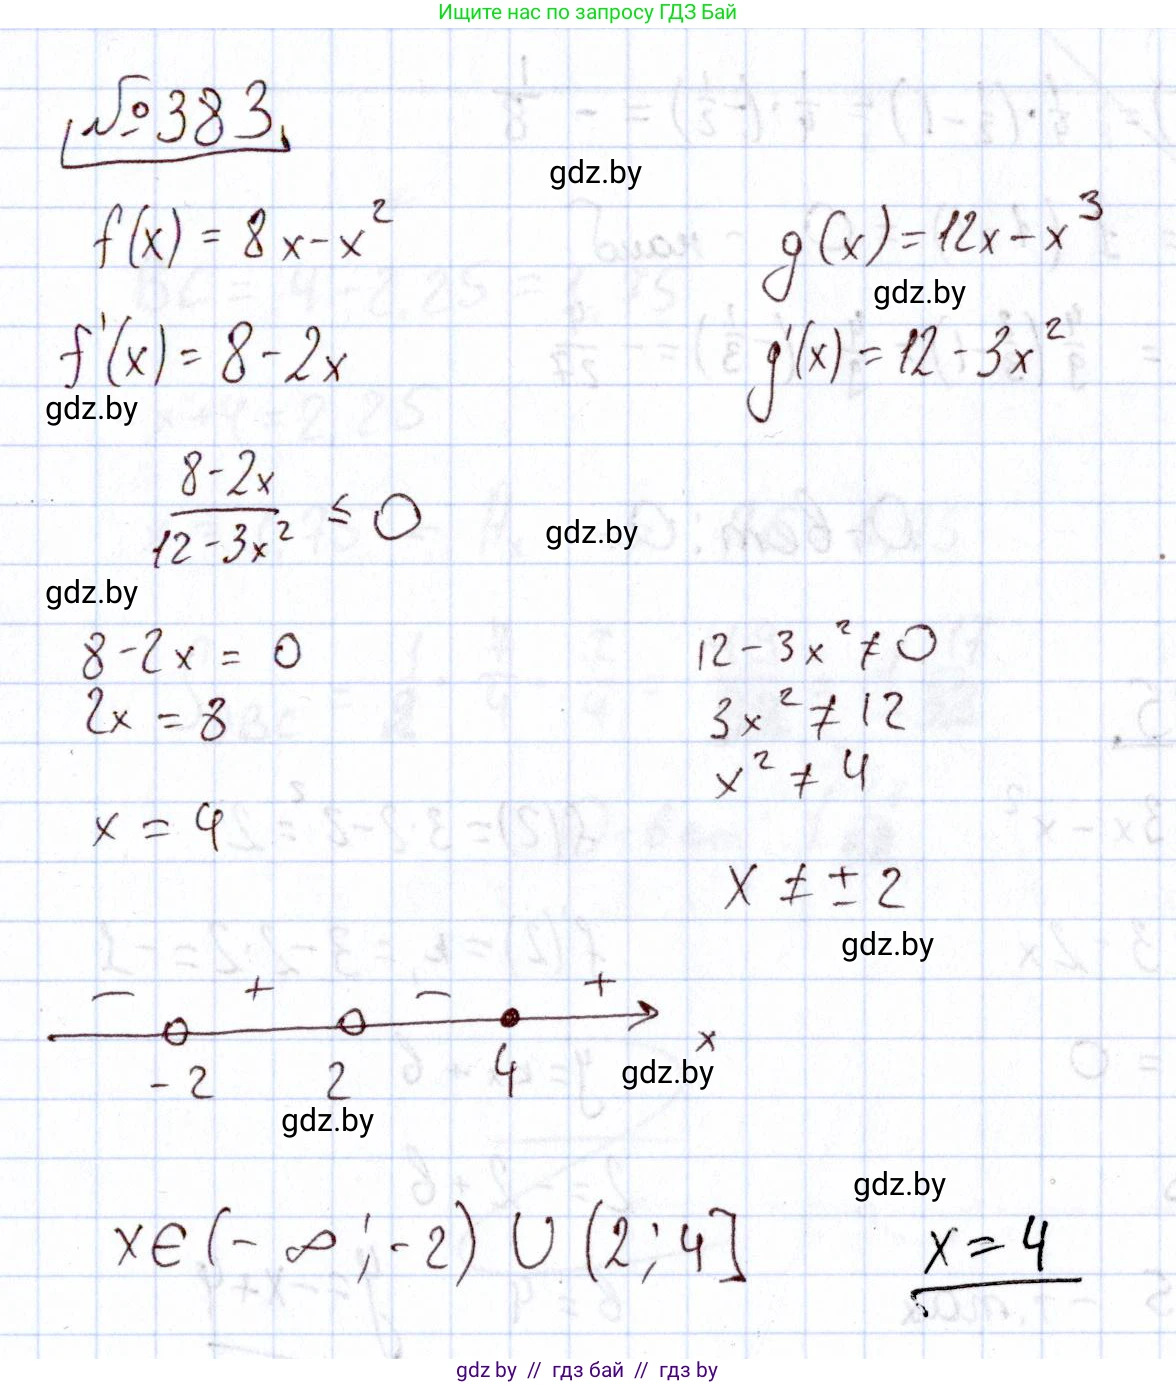 Ищите нас по запросу ГДЗ Бай
№383
gdz.by
f(x) = 8x - x²
g(x) = 12x - x³
gdz.by
f'(x) = 8 - 2x
g'(x) = 12 - 3x²
gdz.by
8 - 2x
12 - 3x² ≤ 0
gdz.by
gdz.by
8 - 2x = 0
12 - 3x² ≠ 0
2x = 8
3x² ≠ 12
x² ≠ 4
x = 4
x ≠ ± 2
gdz.by
− + − +
-2 2 4 x
gdz.by
gdz.by
gdz.by
x ∈ (-∞; -2) ∪ (2; 4]
x = 4
gdz.by // гдз бай // гдз by